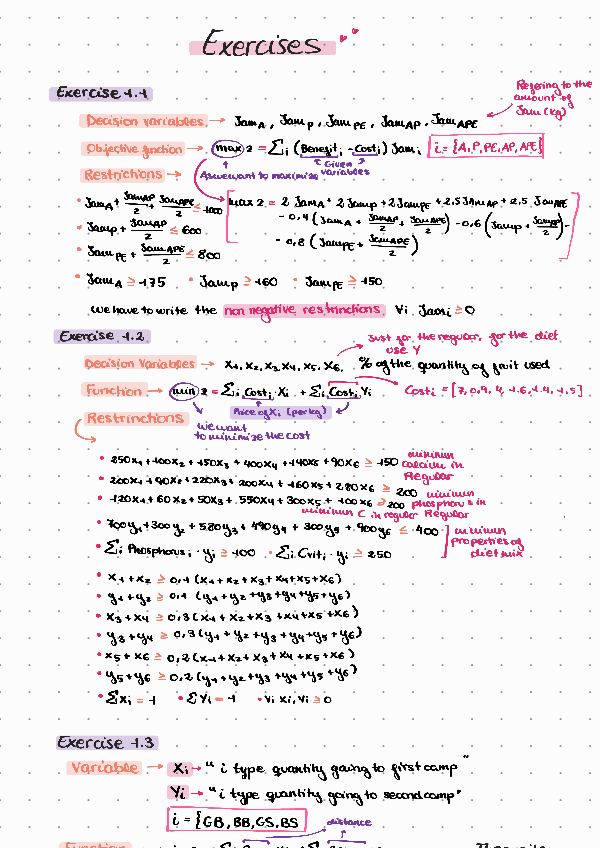 Exercises
Exercise 1.1
Refering to the
amount of
Jam (kg)
Decision variables → Jam_A, Jam_P, Jam_PE, Jam_AP, Jam_APE
Objective function → max z = Σi (Benefit_i - Cost_i) Jam_i i = {A, P, PE, AP, APE}
Given
variables
As we want to maximize
Restrictions →
max z = 2 Jam_A + 2 Jam_P + 2 Jam_PE + 2,5 Jam_AP + 2,5 Jam_APE
- 0,4 (Jam_A + Jam_AP/2 + Jam_APE/2) - 0,6 (Jam_P + Jam_AP/2) -
- 0,8 (Jam_PE + Jam_APE/2)
• Jam_A + Jam_AP/2 + Jam_APE/2 ≤ 1000
• Jam_P + Jam_AP/2 ≤ 600
• Jam_PE + Jam_APE/2 ≤ 800
• Jam_A ≥ 175 • Jam_P ≥ 160 • Jam_PE ≥ 150
We have to write the non negative restrinctions ∀i Jam_i ≥ 0
Exercise 1.2
Just for the regular, for the diet
use Y
Decision Variables → X1, X2, X3, X4, X5, X6, % of the quantity of fruit used
Function → min z = Σi Cost_i X_i + Σi Cost_i Y_i Cost_i = [7, 0,9, 4, 1.6, 1.4, 1.5]
Price of X_i (per kg)
we want
to minimize the cost
Restrinctions
• 250x1 + 100x2 + 150x3 + 400x4 + 140x5 + 90x6 ≥ 150 minimun
calcium in
Regular
• 200x1 + 90x2 + 220x3 + 200x4 + 160x5 + 280x6 ≥ 200 minimun
phosphorus in
Regular
• 120x1 + 60x2 + 50x3 + 550x4 + 300x5 + 100x6 ≥ 200
minimun C in regular
• 700y1 + 300y2 + 580y3 + 490y4 + 300y5 + 900y6 ≤ 400 minimun
properties of
diet mix
• Σi Phosphorus_i · y_i ≥ 100 • Σi Cvit_i · y_i ≥ 250
• x1 + x2 ≥ 0,1 (x1 + x2 + x3 + x4 + x5 + x6)
• y1 + y2 ≥ 0,1 (y1 + y2 + y3 + y4 + y5 + y6)
• x3 + x4 ≥ 0,3 (x1 + x2 + x3 + x4 + x5 + x6)
• y3 + y4 ≥ 0,3 (y1 + y2 + y3 + y4 + y5 + y6)
• x5 + x6 ≥ 0,2 (x1 + x2 + x3 + x4 + x5 + x6)
• y5 + y6 ≥ 0,2 (y1 + y2 + y3 + y4 + y5 + y6)
• Σ X_i = 1 • Σ Y_i = 1 • ∀i X_i, Y_i ≥ 0
Exercise 1.3
Variable → X_i → "i type quantity going to first camp"
Y_i → "i type quantity going to second camp"
i = {GB, BB, GS, BS
distance
Function